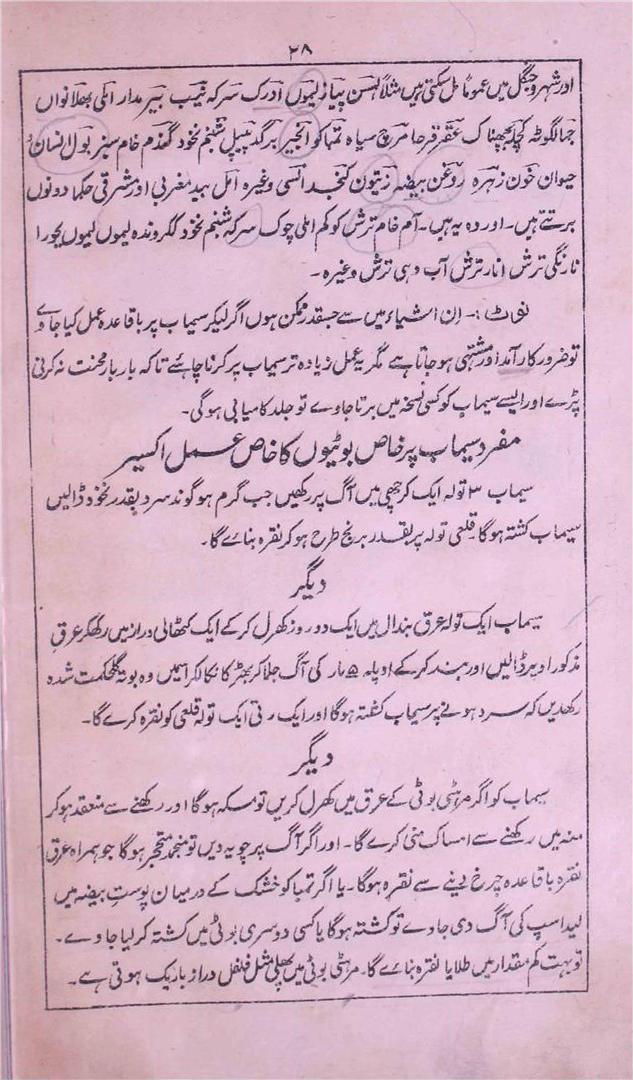 ۲۸
اور شہر و جنگل میں عموماً مل سکتی ہیں مثلاً لہسن پیاز لیموں ادرک سرکہ نیب بیر مدار املی بھلانواں
جمالگوٹہ عقرقرحا مرچ سیاہ تمباکو انجیر برگد پیپل شبنم نخود گندم خام سبز بول انسان
حیوان خون زہرہ روغن بیضہ زیتون کنجد السی وغیرہ اہل ہند مغربی اور مشرقی حکما دونوں
برتتے ہیں۔ اور وہ یہ ہیں۔ آم خام ترش کوکم املی چوک سرکہ شبنم نخود لکروندہ لیموں لیموں بجورا
نارنگی ترش انار ترش آب دہی ترش وغیرہ۔
نوٹ:۔ اِن اشیاء میں سے جسقدر ممکن ہوں اگر لیکر سیماب پر باقاعدہ عمل کیا جاوے
تو ضرور کارآمد اور مشتہی ہو جاتا ہے مگر یہ عمل زیادہ تر سیماب پر کرنا چاہئے تاکہ بار بار محنت نہ کرنی
پڑے اور ایسے سیماب کو کسی نسخہ میں برتا جاوے تو جلد کامیابی ہو گی۔
مفرد سیماب پر خاص بوٹیوں کا خاص عمل اکسیر
سیماب ۳ تولہ ایک کرچھی میں آگ پر رکھیں جب گرم ہو گوند سرد بقدر نخود ڈالیں
سیماب کشتہ ہوگا قلعی تولہ پر بقدر برنج طرح ہو کر نقرہ بنائے گا۔
دیگر
سیماب ایک تولہ عرق بندال میں ایک دو روز کھرل کر کے ایک کٹھالی دراز میں رکھکر عرق
مذکور اوپر ڈالیں اور بند کر کے اوپلہ ۵ مار کی آگ جلا کر بھڑکا نکالکر اسمیں وہ بوتہ گلحکمت شدہ
رکھدیں کہ سرد ہونے پر سیماب کشتہ ہوگا اور ایک رتی ایک تولہ قلعی کو نقرہ کرے گا۔
دیگر
سیماب کو اگر مرہٹی بوٹی کے عرق میں کھرل کریں تو مسکہ ہوگا اور رکھنے سے منعقد ہو کر
منہ میں رکھنے سے امساک منی کرے گا۔ اور اگر آگ پر چویہ دیں تو منجمد متحجر ہوگا جو ہمراہ عرق
نقرہ باقاعدہ چرخ دینے سے نقرہ ہوگا۔ یا اگر تمباکو خشک کے درمیان پوست بیضہ میں
لید اسپ کی آگ دی جاوے تو کشتہ ہوگا یا کسی دوسری بوٹی میں کشتہ کر لیا جاوے۔
تو بہت کم مقدار میں طلا یا نقرہ بنائے گا۔ مرہٹی بوٹی میں پھلی مثل فلفل دراز باریک ہوتی ہے۔